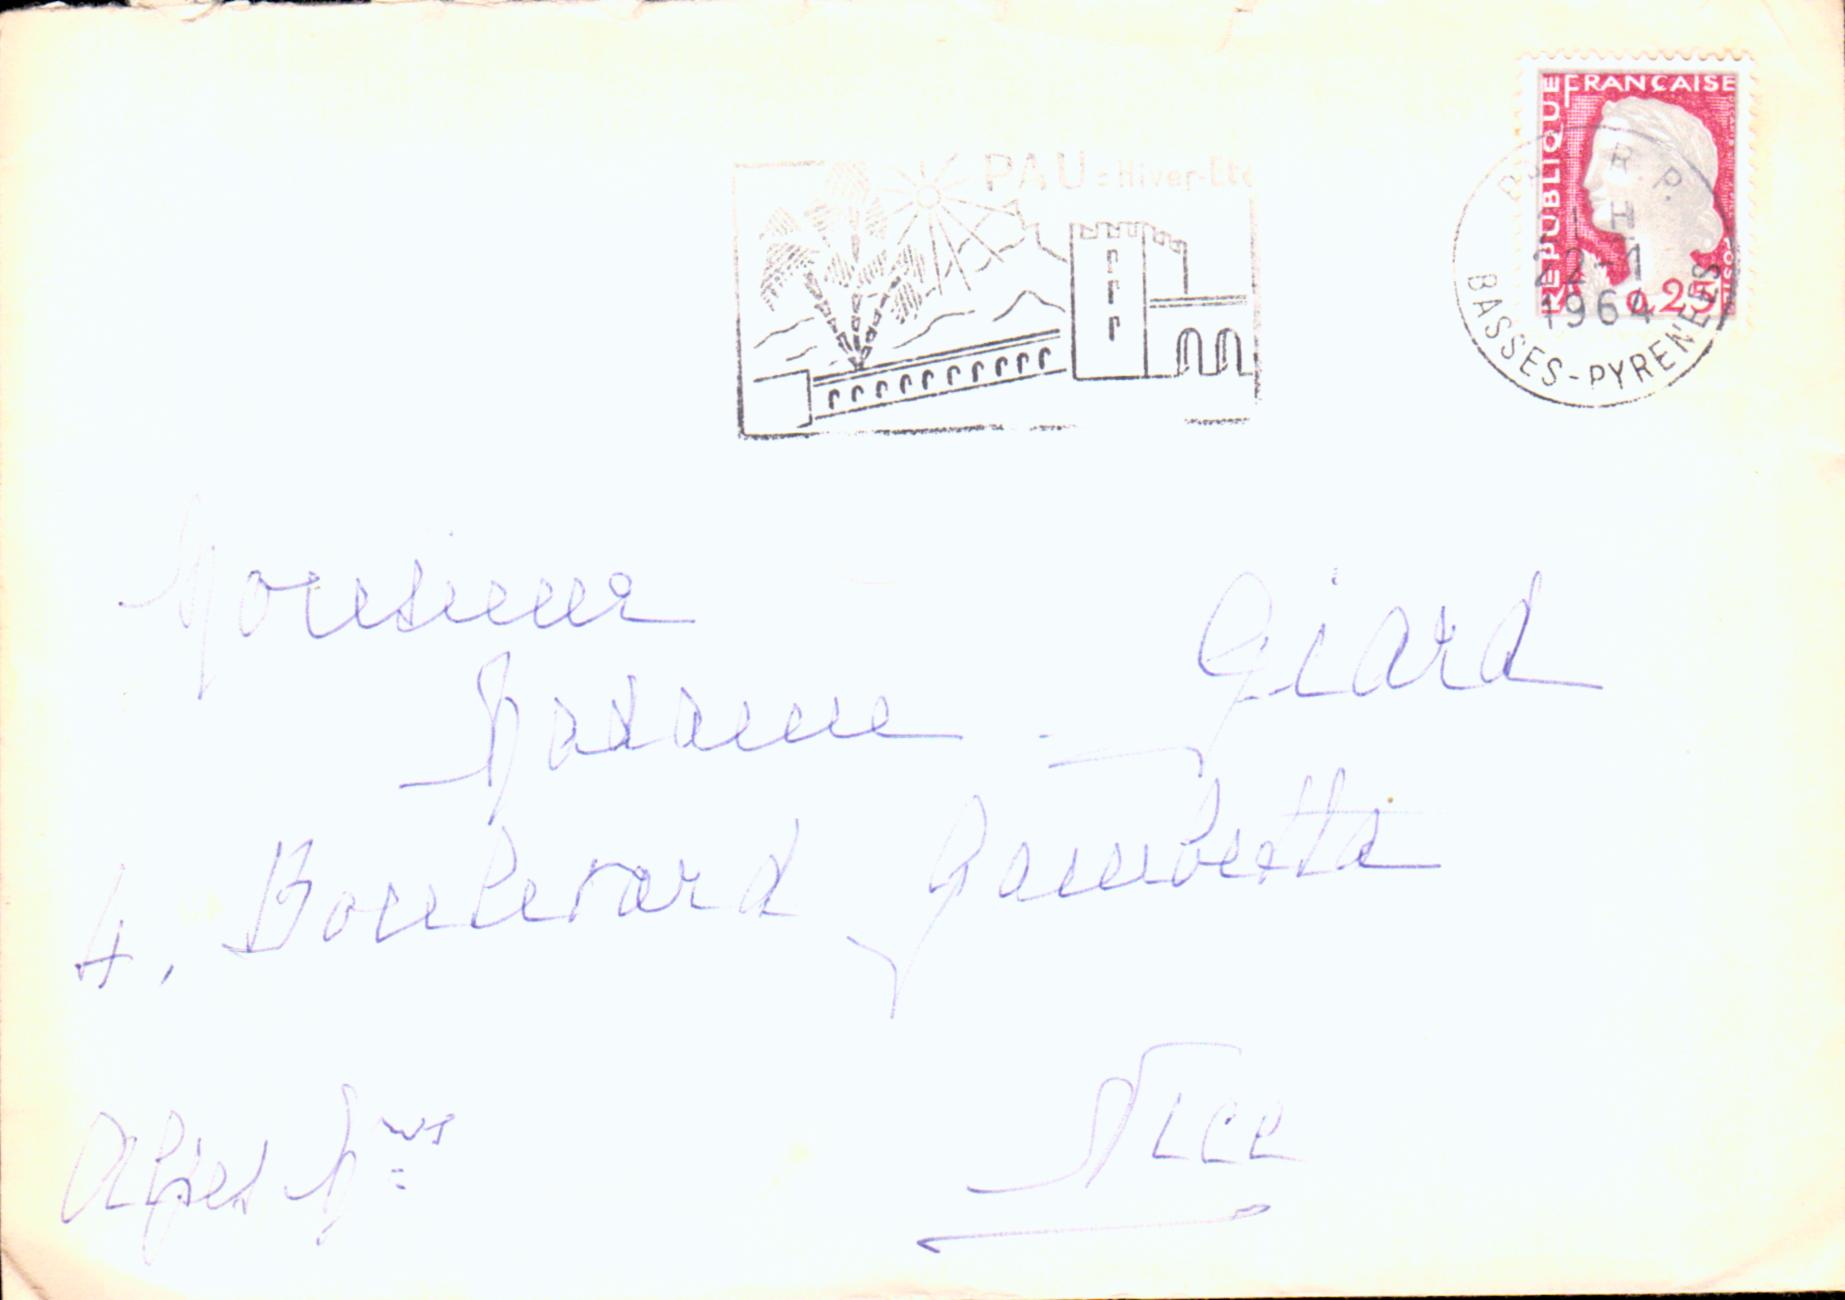 PAU : Hiver-Eté
REPUBLIQUE FRANÇAISE
0,25
R.P.
H
22-1
1964
BASSES-PYRENEES
Monsieur
Madame Giard
4, Boulevard Gambetta
Nice
Alpes Mmes